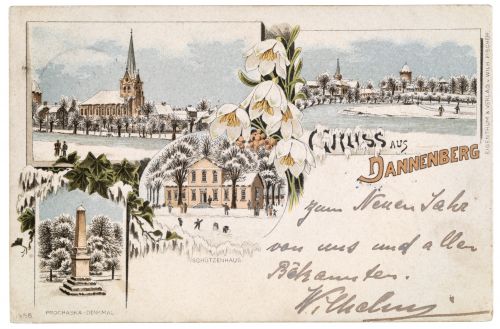 GRUSS AUS
DANNENBERG
EIGENTHUM & VERLAG v. WILH. FISCHER.
SCHÜTZENHAUS
PROCHASKA-DENKMAL
zum Neuen Jahr
von uns und allen
Bekannten.
Wilhelm